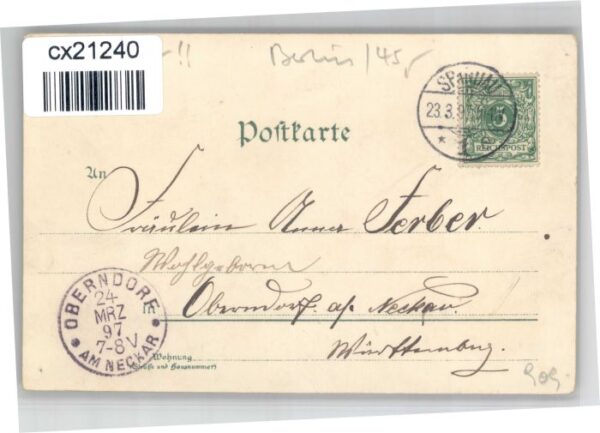 cx21240
!!
Berlin / 45
SPANDAU
23.3.9
5
REICHSPOST
Postkarte
An
Fräulein Anna Ferber.
Wohlgeboren
in Oberndorf a/ Neckar.
Württemberg.
OBERNDORF
24
MRZ
97
7-8 V
AM NECKAR
Wohnung
(Straße und Hausnummer)